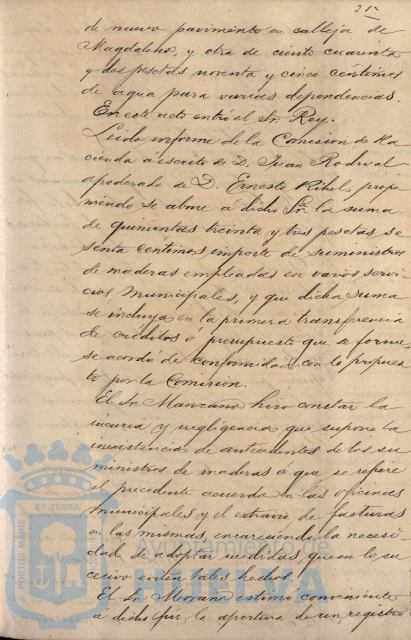 31
de nuevo pavimento en calleja de
Magdalena, y otra de ciento cuarenta
y dos pesetas noventa y cinco céntimos
de agua para varias dependencias.
En este acto entró el Sr. Rey.
Leido informe de la Comision de Ha
cienda a escrito de D. Juan
apoderado de D. Ernesto propo
niendo se abone á dicho Sr. la suma
de quinientas treinta y tres pesetas se
senta centimos, importe de suministros
de maderas empleadas en varios servi
cios municipales, y que dicha suma
se incluya en la primera transferencia
de créditos ó presupuesto que se forme,
se acordó de conformidad con lo propues
to por la Comisión.
El Sr. Manzano hizo constar la
incuria y negligencia que supone la
inexistencia de antecedentes de los su
ministros de maderas á que se refiere
el precedente acuerdo en las oficinas
municipales y el extravio de facturas
en las mismas, encareciendo la necesi
dad de adoptar medidas que en lo su
cesivo eviten tales hechos.
El Sr. Morano estimó conveniente
á dicho fin la apertura de un registro
PORTUS MARIS ET TERRAE
Ayuntamiento de
HUELVA